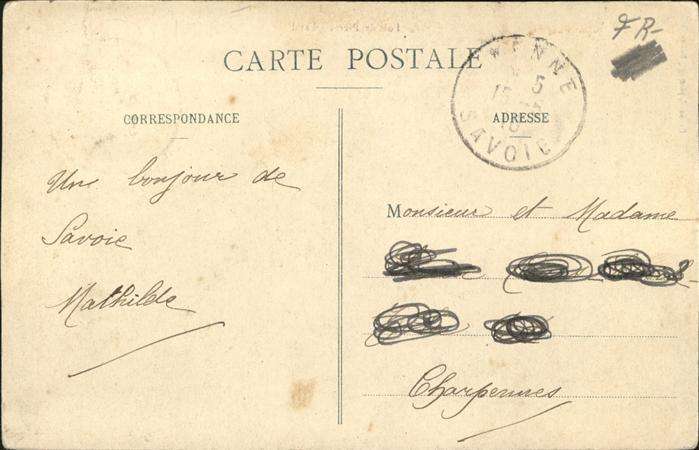 FR-
CARTE POSTALE
YENNE
SAVOIE
CORRESPONDANCE
ADRESSE
Un bonjour de
Savoie
Mathilde
Monsieur et Madame
Charpennes